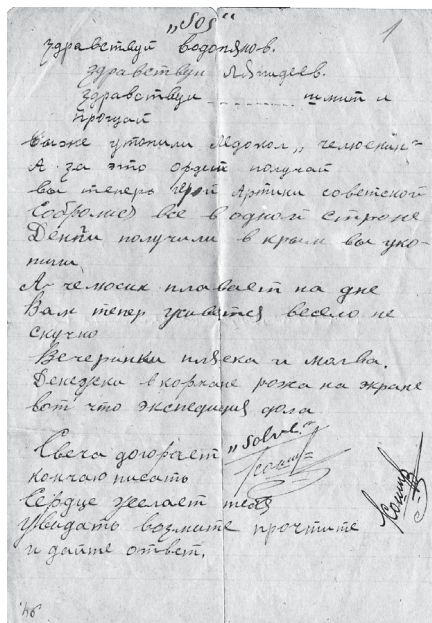 „SOS“
1
здравствуй водопянов.
здравствуи Ляпидеев.
здравствуи шмит и
прощай
Вы же утопили Ледокол „челюскин“
А за это орден получай
вы теперь герои Артики советской
Собролися все в одной строне
Денги получили в крым вы уко-
тили
А челюскин плавает на дне
Вам тепер живется весело не
скучно
Вечеринки пляска и молва.
Денежки в кормане рожа на экране
вот что экспедиция дала
Свеча догорает „Solve.“
кончаю писать
Сердце желает тебя
Увидать возмите прочтите
и дайте ответ.